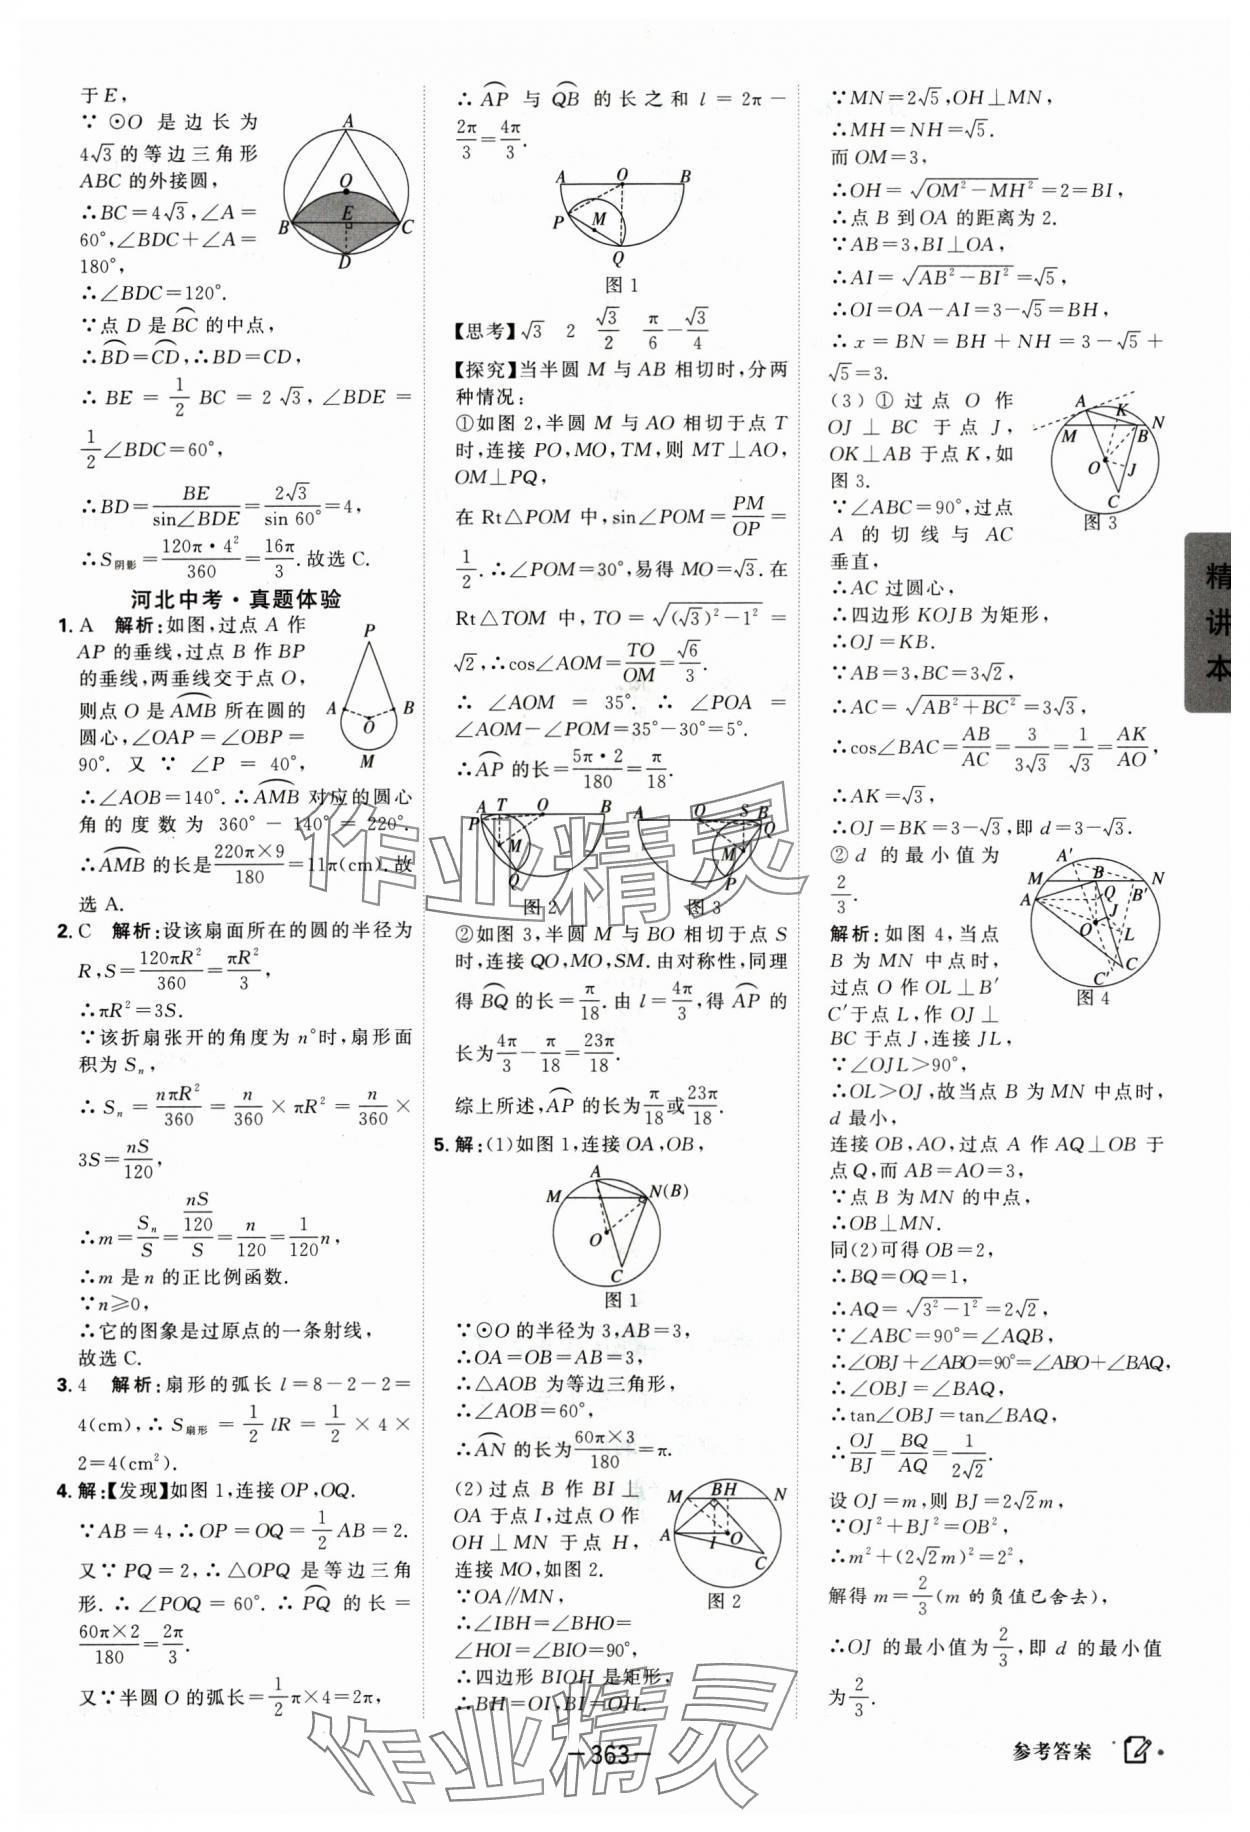 于E,
∵ ⊙O 是边长为
4√3的等边三角形
ABC的外接圆,
∴BC=4√3,∠A=
60°,∠BDC+∠A=
180°,
∴∠BDC=120°.
∵点 D 是⌒BC的中点,
∴⌒BD=⌒CD,∴BD=CD,
∴ BE = 1/2 BC = 2√3, ∠BDE =
1/2∠BDC=60°,
∴BD=BE/sin∠BDE=2√3/sin 60°=4,
∴S阴影=120π·4²/360=16π/3.故选C.
A
O
B E C
D
河北中考·真题体验
1. A 解析:如图,过点 A 作
AP 的垂线,过点 B 作 BP
的垂线,两垂线交于点 O,
则点 O 是⌒AMB 所在圆的
圆心,∠OAP=∠OBP=
90°. 又 ∵ ∠P = 40°,
∴∠AOB=140°.∴⌒AMB 对应的圆心
角的度数为 360° - 140° = 220°.
∴⌒AMB的长是220π×9/180=11π(cm).故
选 A.
P
A B
O
M
2. C 解析:设该扇面所在的圆的半径为
R,S=120πR²/360=πR²/3,
∴πR²=3S.
∵该折扇张开的角度为 n°时,扇形面
积为 Sₙ,
∴ Sₙ = nπR²/360 = n/360 × πR² = n/360 ×
3S=nS/120,
∴m=Sₙ/S=(nS/120)/S=n/120=1/120n,
∴m 是 n 的正比例函数.
∵n≥0,
∴它的图象是过原点的一条射线,
故选C.
3. 4 解析:扇形的弧长 l=8-2-2=
4(cm),∴ S扇形 = 1/2 lR = 1/2 × 4 ×
2=4(cm²).
4. 解:【发现】如图1,连接OP,OQ.
∵AB=4,∴OP=OQ=1/2AB=2.
又∵ PQ=2,∴△OPQ 是等边三角
形. ∴ ∠POQ = 60°. ∴ ⌒PQ 的长 =
60π×2/180=2π/3.
又∵半圆 O 的弧长=1/2π×4=2π,
∴ ⌒AP 与 ⌒QB 的长之和 l = 2π -
2π/3=4π/3.
A O B
P M
Q
图1
【思考】√3 2 √3/2 π/6-√3/4
【探究】当半圆 M 与 AB 相切时,分两
种情况:
①如图 2,半圆 M 与 AO 相切于点 T
时,连接 PO,MO,TM,则 MT⊥AO,
OM⊥PQ,
在 Rt△POM 中,sin∠POM=PM/OP=
1/2.∴∠POM=30°,易得 MO=√3.在
Rt△TOM 中,TO=√((√3)²-1²)=
√2,∴cos∠AOM=TO/OM=√6/3.
∴ ∠AOM = 35°. ∴ ∠POA =
∠AOM-∠POM=35°-30°=5°.
∴⌒AP的长=5π·2/180=π/18.
A T O B
P
M
Q
图2
A O S B
Q
M
P
图3
②如图 3,半圆 M 与 BO 相切于点 S
时,连接 QO,MO,SM. 由对称性,同理
得⌒BQ的长=π/18. 由 l=4π/3,得⌒AP的
长为4π/3-π/18=23π/18.
综上所述,⌒AP的长为π/18或23π/18.
5. 解:(1)如图1,连接OA,OB,
A
M N(B)
O
C
图1
∵⊙O的半径为3,AB=3,
∴OA=OB=AB=3,
∴△AOB 为等边三角形,
∴∠AOB=60°,
∴⌒AN的长为60π×3/180=π.
(2)过点 B 作 BI⊥
OA于点I,过点O作
OH⊥MN 于点 H,
连接 MO,如图2.
∵OA∥MN,
∴∠IBH=∠BHO=
∠HOI=∠BIO=90°,
∴四边形 BIOH 是矩形,
∴BH=OI,BI=OH.
M B H N
A I O
C
图2
∵MN=2√5,OH⊥MN,
∴MH=NH=√5.
而OM=3,
∴OH=√(OM²-MH²)=2=BI,
∴点 B 到 OA 的距离为2.
∵AB=3,BI⊥OA,
∴AI=√(AB²-BI²)=√5,
∴OI=OA-AI=3-√5=BH,
∴ x = BN = BH + NH = 3 - √5 +
√5=3.
(3) ① 过点 O 作
OJ ⊥ BC 于点 J,
OK⊥AB于点K,如
图3.
∵∠ABC=90°,过点
A 的切线与 AC
垂直,
∴AC过圆心,
∴四边形 KOJB 为矩形,
∴OJ=KB.
∵AB=3,BC=3√2,
∴AC=√(AB²+BC²)=3√3,
∴cos∠BAC=AB/AC=3/3√3=1/√3=AK/AO,
∴AK=√3,
∴OJ=BK=3-√3,即d=3-√3.
A K N
M B
O J
C
图3
② d 的最小值为
2/3.
解析:如图4,当点
B 为 MN 中点时,
过点O作OL⊥B′
C′于点L,作OJ⊥
BC于点J,连接JL,
∵∠OJL>90°,
∴OL>OJ,故当点 B 为 MN 中点时,
d最小,
A′
M B N
A Q B′
O J
L
C′ C
图4
连接 OB,AO,过点 A 作 AQ⊥OB 于
点Q,而AB=AO=3,
∵点 B 为 MN 的中点,
∴OB⊥MN.
同(2)可得OB=2,
∴BQ=OQ=1,
∴AQ=√(3²-1²)=2√2,
∵∠ABC=90°=∠AQB,
∴∠OBJ+∠ABO=90°=∠ABO+∠BAQ,
∴∠OBJ=∠BAQ,
∴tan∠OBJ=tan∠BAQ,
∴OJ/BJ=BQ/AQ=1/2√2.
设OJ=m,则BJ=2√2m,
∵OJ²+BJ²=OB²,
∴m²+(2√2m)²=2²,
解得 m=2/3(m 的负值已舍去),
∴OJ 的最小值为2/3,即 d 的最小值
为2/3.
精讲本
作业精灵
作业精灵
—363—
参考答案